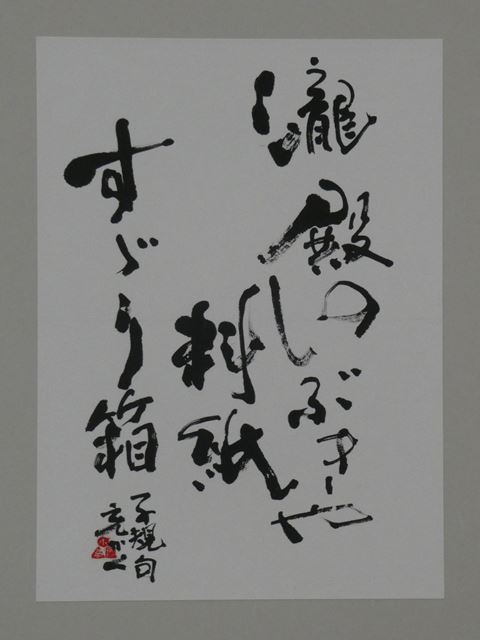 瀧殿のしぶきや
料紙
すゞり箱
子規句